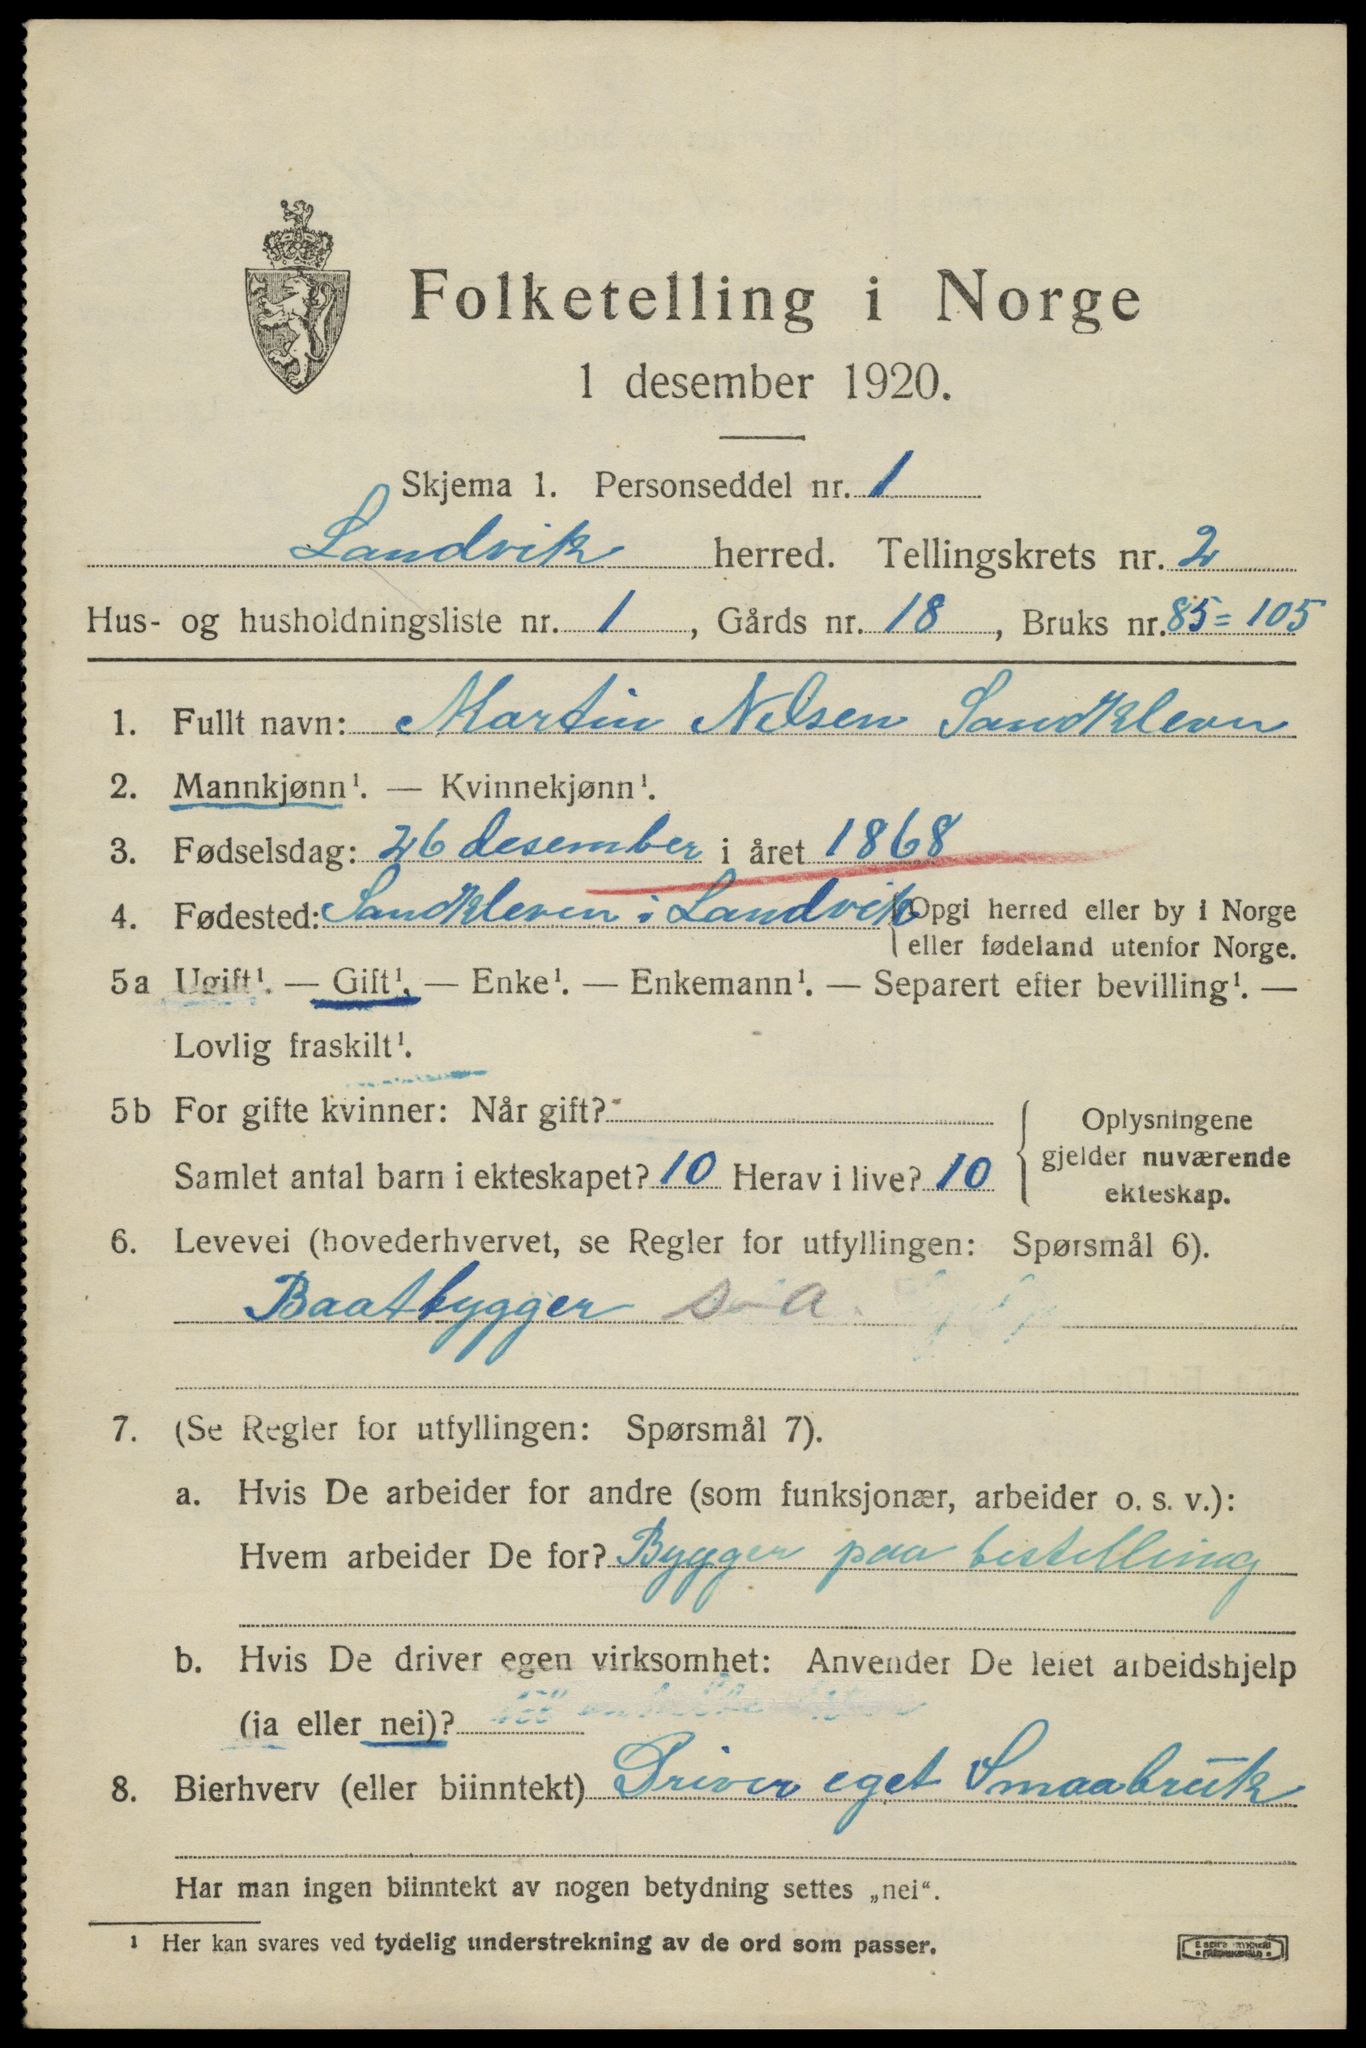 Folketelling i Norge
1 desember 1920.
Skjema 1. Personseddel nr. 1
Landvik herred. Tellingskrets nr. 2
Hus- og husholdningsliste nr. 1, Gårds nr. 18, Bruks nr. 85=105
1. Fullt navn: Martin Nelsen Sandkleven
2. Mannkjønn¹. — Kvinnekjønn¹.
3. Fødselsdag: 26 desember i året 1868
4. Fødested: Sandkleven i Landvik { Opgi herred eller by i Norge
eller fødeland utenfor Norge.
5a Ugift¹. — Gift¹. — Enke¹. — Enkemann¹. — Separert efter bevilling¹. —
Lovlig fraskilt¹.
5b For gifte kvinner: Når gift?
Samlet antal barn i ekteskapet? 10 Herav i live? 10
Oplysningene
gjelder nuværende
ekteskap.
6. Levevei (hovederhvervet, se Regler for utfyllingen: Spørsmål 6).
Baatbygger s-a
7. (Se Regler for utfyllingen: Spørsmål 7).
a. Hvis De arbeider for andre (som funksjonær, arbeider o. s. v.):
Hvem arbeider De for? Bygger paa bestelling
b. Hvis De driver egen virksomhet: Anvender De leiet arbeidshjelp
(ja eller nei)?
8. Bierhverv (eller biinntekt) Driver eget Smaabruk
Har man ingen biinntekt av nogen betydning settes „nei“.
¹ Her kan svares ved tydelig understrekning av de ord som passer.